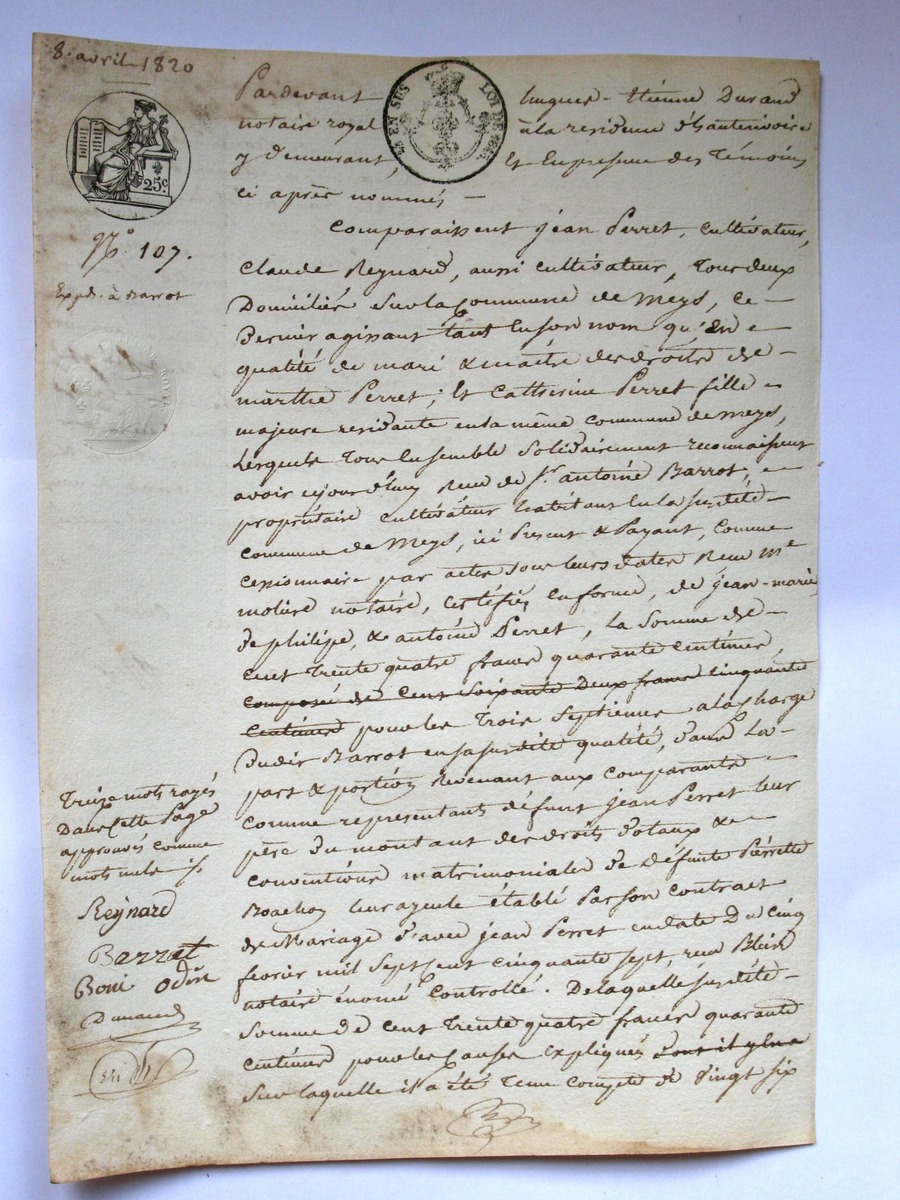 8. avril 1820
25 c.
EN SUS
LOI DE 1816
N.o 107.
Expd. à Barrot
Pardevant hugues-étienne Durand
notaire royal à la residence d'hauterivoire
y demeurant, Et En presence des Témoins
ci après nommés
Comparaissent jean Perret, cultivateur,
Claude Reynard, aussi cultivateur, tous deux
Domiciliés sur la Commune de Meys, ce
Dernier agissant tant En son nom qu'En
qualité de mari & maître des droits de
marthe Perret; Et Catherine Perret fille
majeure residante en la même commune de meys,
Lesquels tous Ensemble solidairement reconnaissent
avoir cejourd'huy Reçu de S.r antoine Barrot,
propriétaire cultivateur habitant En la susdite
commune de Meys, ici Present & Payant, comme
cessionnaire par actes sous leurs dates Reçu Me
notaire, certifiés en forme, de jean-marie
de philipe, & antoine Perret, la somme de
cent trente quatre francs quarante centimes,
composée de cent soixante Deux francs cinquante
centimes pour les trois septiemes à la charge
Dudit Barrot en sa susdite qualité, dans la
part & portion Revenant aux comparants
comme representants défunt jean Perret leur
père du montant des droits dotaux &
conventions matrimoniales de défunte Pierrette
leur ayeule établé Par son contract
de Mariage d'avec jean Perret en date Du cinq
fevrier mil sept cent cinquante sept, reçu
notaire controllé. De laquelle susdite
somme de cent trente quatre francs quarante
centimes pour les causes expliquées dont il
sur laquelle il a été tenu compte de vingt six
Treize mots rayés
Dans cette Page
approuvés comme
mots nuls
Reynard
Barrat
Boni odin
Durand